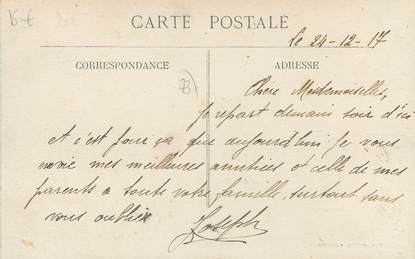 15 €
CARTE POSTALE
le 24-12-17
CORRESPONDANCE
ADRESSE
Chère Mademoiselles,
Je repart demain soir d'ici
et c'est pour ça que aujourd'hui je vous
envoie mes meilleures amitiées et celle de mes
parents a toute votre famille, surtout sans
vous oublier
Joseph